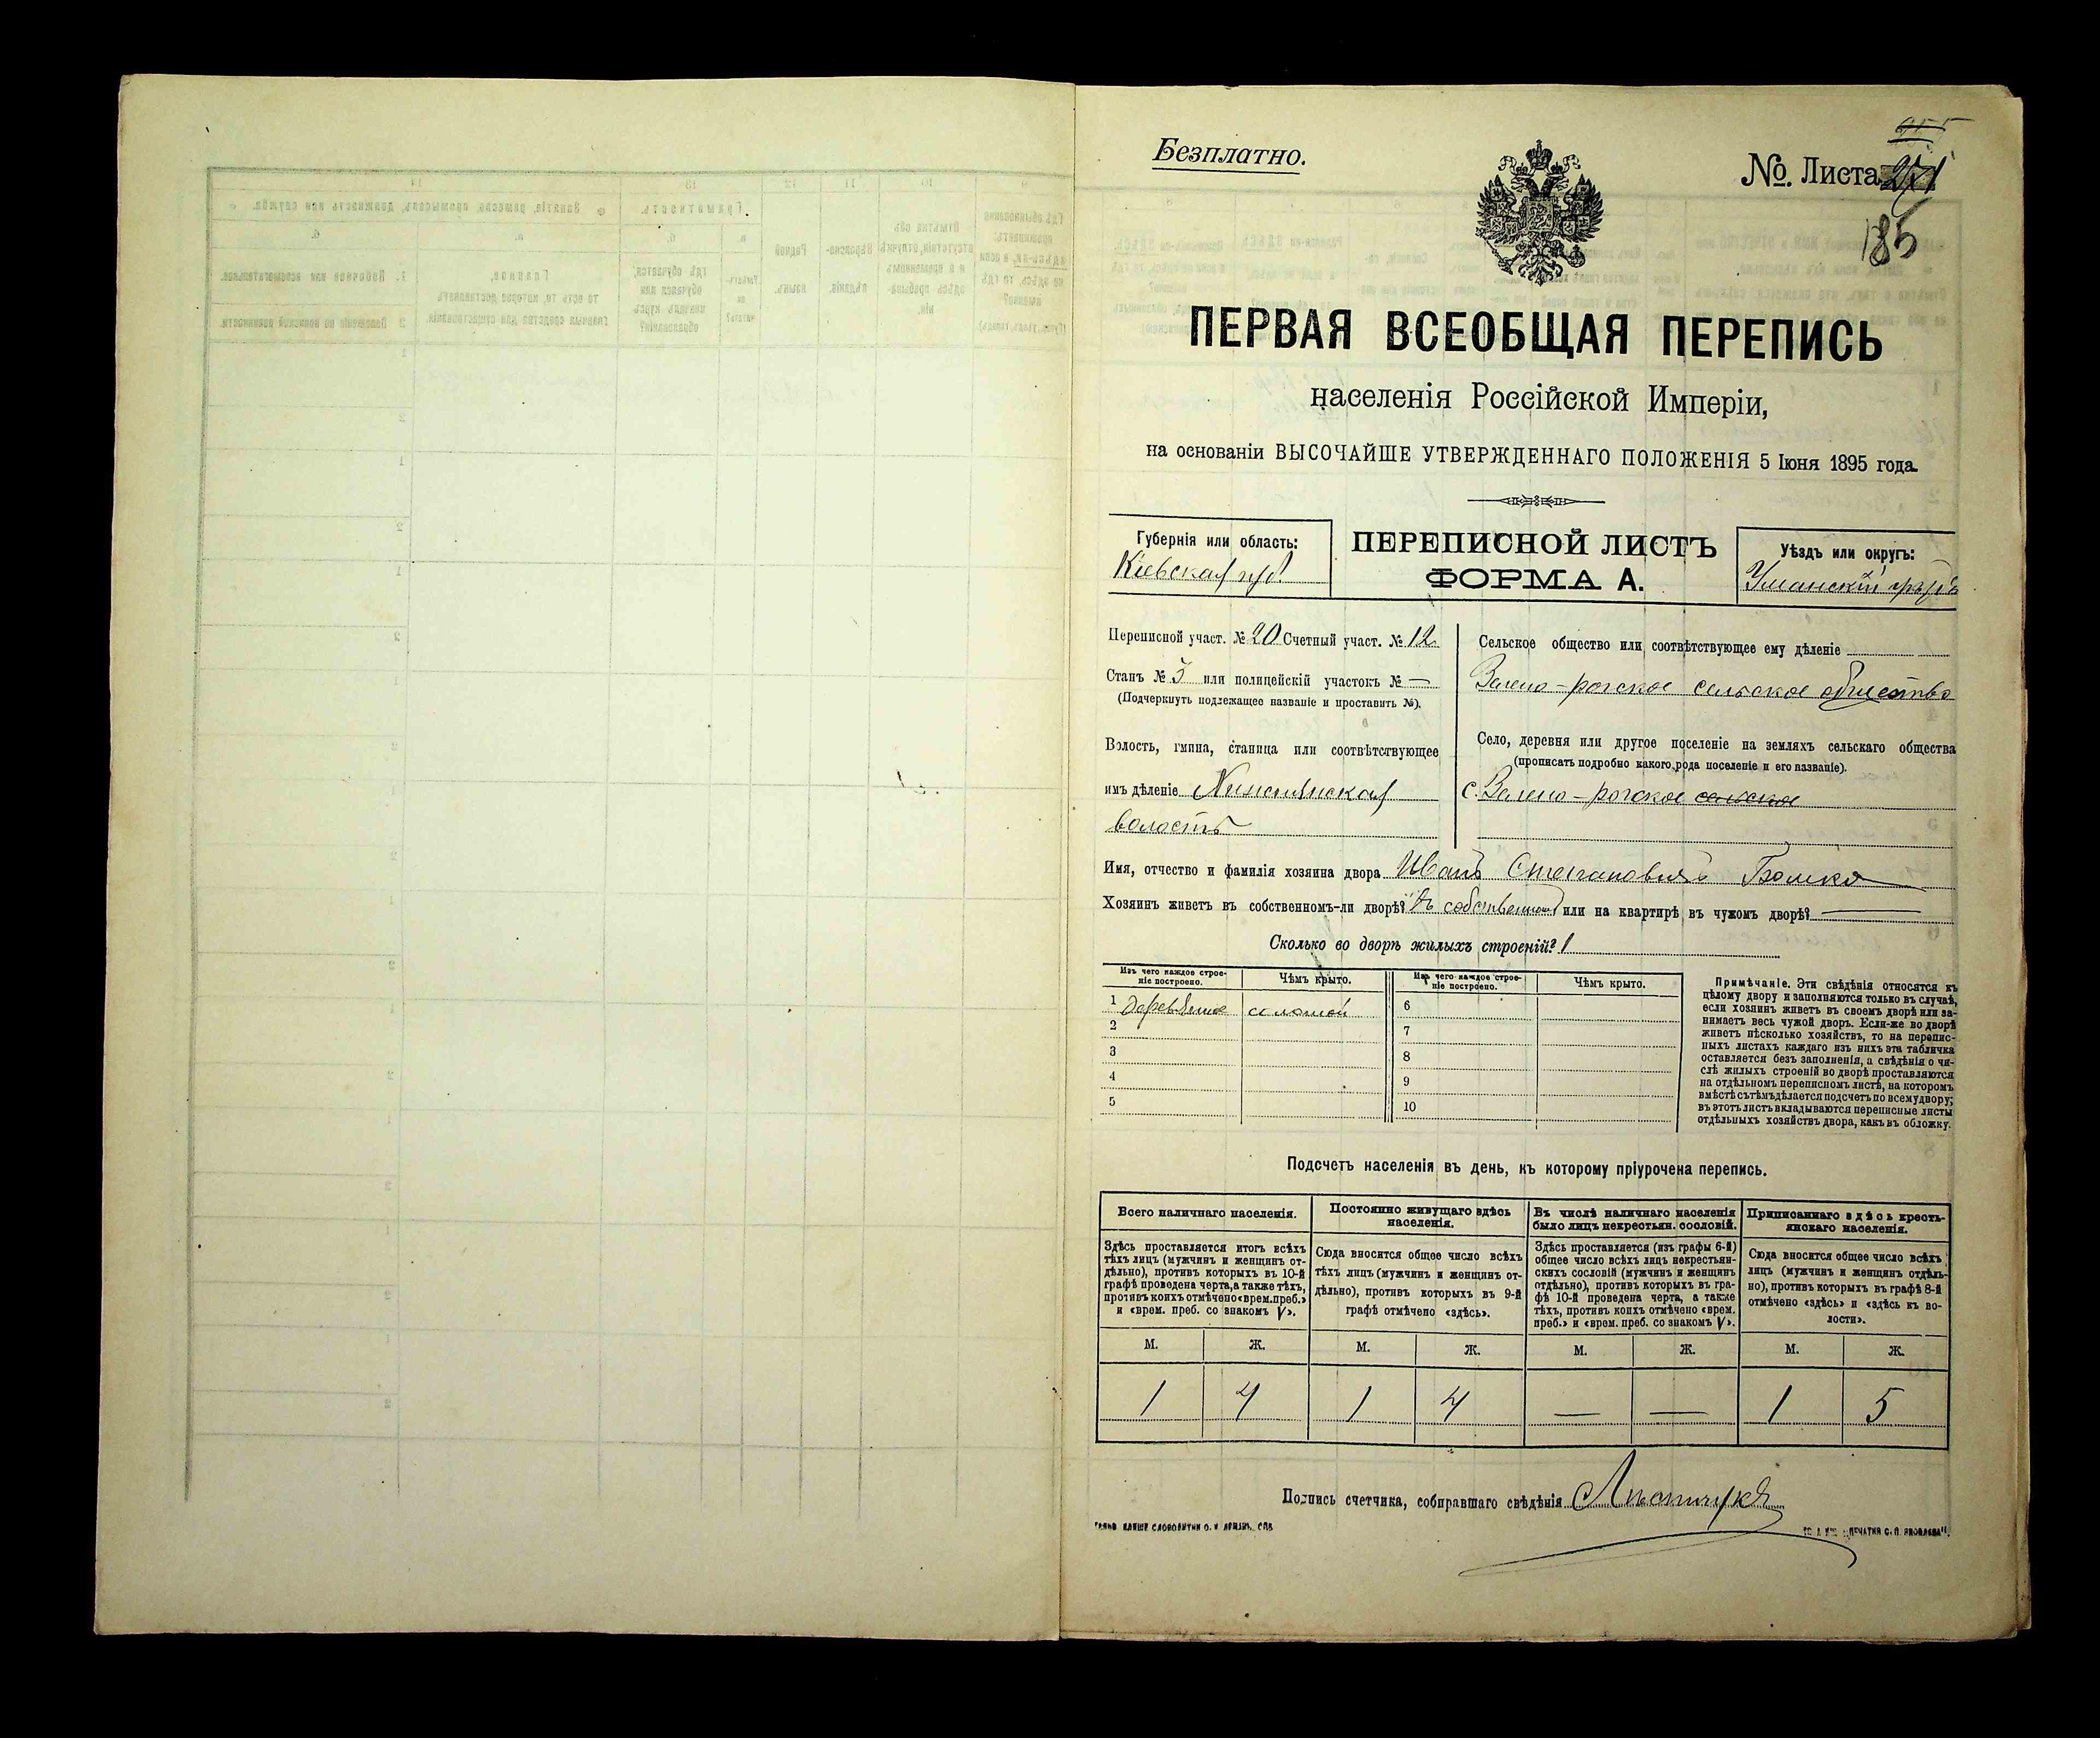 Безплатно.
№. Листа 271
185
ПЕРВАЯ ВСЕОБЩАЯ ПЕРЕПИСЬ
населенія Россійской Имперіи,
на основаніи ВЫСОЧАЙШЕ УТВЕРЖДЕННАГО ПОЛОЖЕНІЯ 5 Іюня 1895 года.
Губернія или область:
Кіевская губ.
ПЕРЕПИСНОЙ ЛИСТЪ
ФОРМА А.
Уѣздъ или округъ:
Уманскій
Переписной участ. № 20 Счетный участ. № 12
Станъ № 3 или полицейскій участокъ № —
(Подчеркнуть подлежащее названіе и проставить №).
Волость, гмина, станица или соотвѣтствующее
имъ дѣленіе
волость
Сельское общество или соотвѣтствующее ему дѣленіе
Зелено-рогское сельское общество
Село, деревня или другое поселеніе на земляхъ сельскаго общества
(прописать подробно какого рода поселеніе и его названіе).
с. Зелено-рогское сельское
Имя, отчество и фамилія хозяина двора Иванъ Степановичъ
Хозяинъ живетъ въ собственномъ-ли дворѣ? Въ собственномъ или на квартирѣ въ чужомъ дворѣ? —
Сколько во дворѣ жилыхъ строеній? 1
Изъ чего каждое строеніе построено.
Чѣмъ крыто.
Изъ чего каждое строеніе построено.
Чѣмъ крыто.
1 деревяное соломой
2
3
4
5
6
7
8
9
10
Примѣчаніе. Эти свѣдѣнія относятся къ
цѣлому двору и заполняются только въ случаѣ,
если хозяинъ живетъ въ своемъ дворѣ или за-
нимаетъ весь чужой дворъ. Если-же во дворѣ
живетъ нѣсколько хозяйствъ, то на перепис-
ныхъ листахъ каждаго изъ нихъ эта табличка
оставляется безъ заполненія, а свѣдѣнія о чи-
слѣ жилыхъ строеній во дворѣ проставляются
на отдѣльномъ переписномъ листѣ, на которомъ
вмѣстѣ съ тѣмъ дѣлается подсчетъ по всему двору;
въ этотъ листъ вкладываются переписные листы
отдѣльныхъ хозяйствъ двора, какъ въ обложку.
Подсчетъ населенія въ день, къ которому пріурочена перепись.
Всего наличнаго населенія.
Здѣсь проставляется итогъ всѣхъ
тѣхъ лицъ (мужчинъ и женщинъ от-
дѣльно), противъ которыхъ въ 10-й
графѣ проведена черта, а также тѣхъ,
противъ коихъ отмѣчено «врем. преб.»
и «врем. преб. со знакомъ V».
Постоянно живущаго здѣсь
населенія.
Сюда вносится общее число всѣхъ
тѣхъ лицъ (мужчинъ и женщинъ от-
дѣльно), противъ которыхъ въ 9-й
графѣ отмѣчено «здѣсь».
Въ числѣ наличнаго населенія
было лицъ некрестьян. сословій.
Здѣсь проставляется (изъ графы 6-й)
общее число всѣхъ лицъ некрестьян-
скихъ сословій (мужчинъ и женщинъ
отдѣльно), противъ которыхъ въ гра-
фѣ 10-й проведена черта, а также
тѣхъ, противъ коихъ отмѣчено «врем.
преб.» и «врем. преб. со знакомъ V».
Приписаннаго здѣсь кресть-
янскаго населенія.
Сюда вносится общее число всѣхъ
лицъ (мужчинъ и женщинъ отдѣль-
но), противъ которыхъ въ графѣ 8-й
отмѣчено «здѣсь» и «здѣсь къ во-
лости».
М. Ж. М. Ж. М. Ж. М. Ж.
1 4 1 4 — — 1 5
Подпись счетчика, собиравшаго свѣдѣнія